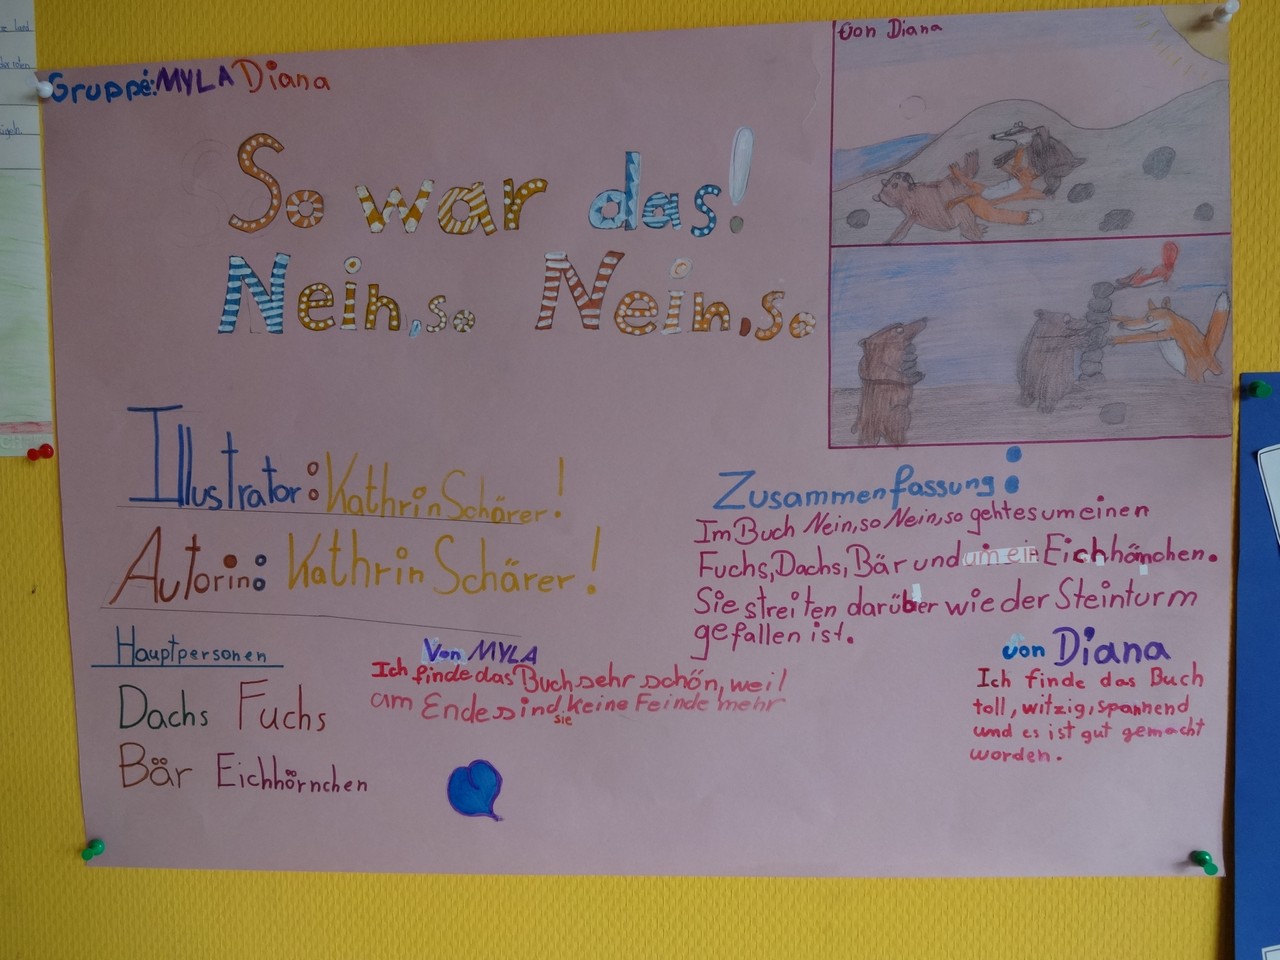 Gruppe: MYLA Diana
So war das!
Nein, so Nein, so
von Diana
Illustrator: Kathrin Schärer!
Autorin: Kathrin Schärer!
Hauptpersonen
Dachs Fuchs
Bär Eichhörnchen
Von MYLA
Ich finde das Buch sehr schön, weil
am Ende sind sie keine Feinde mehr
Zusammenfassung:
Im Buch Nein, so Nein, so geht es um einen
Fuchs, Dachs, Bär und um ein Eichhörnchen.
Sie streiten darüber wie der Steinturm
gefallen ist.
von Diana
Ich finde das Buch
toll, witzig, spannend
und es ist gut gemacht
worden.